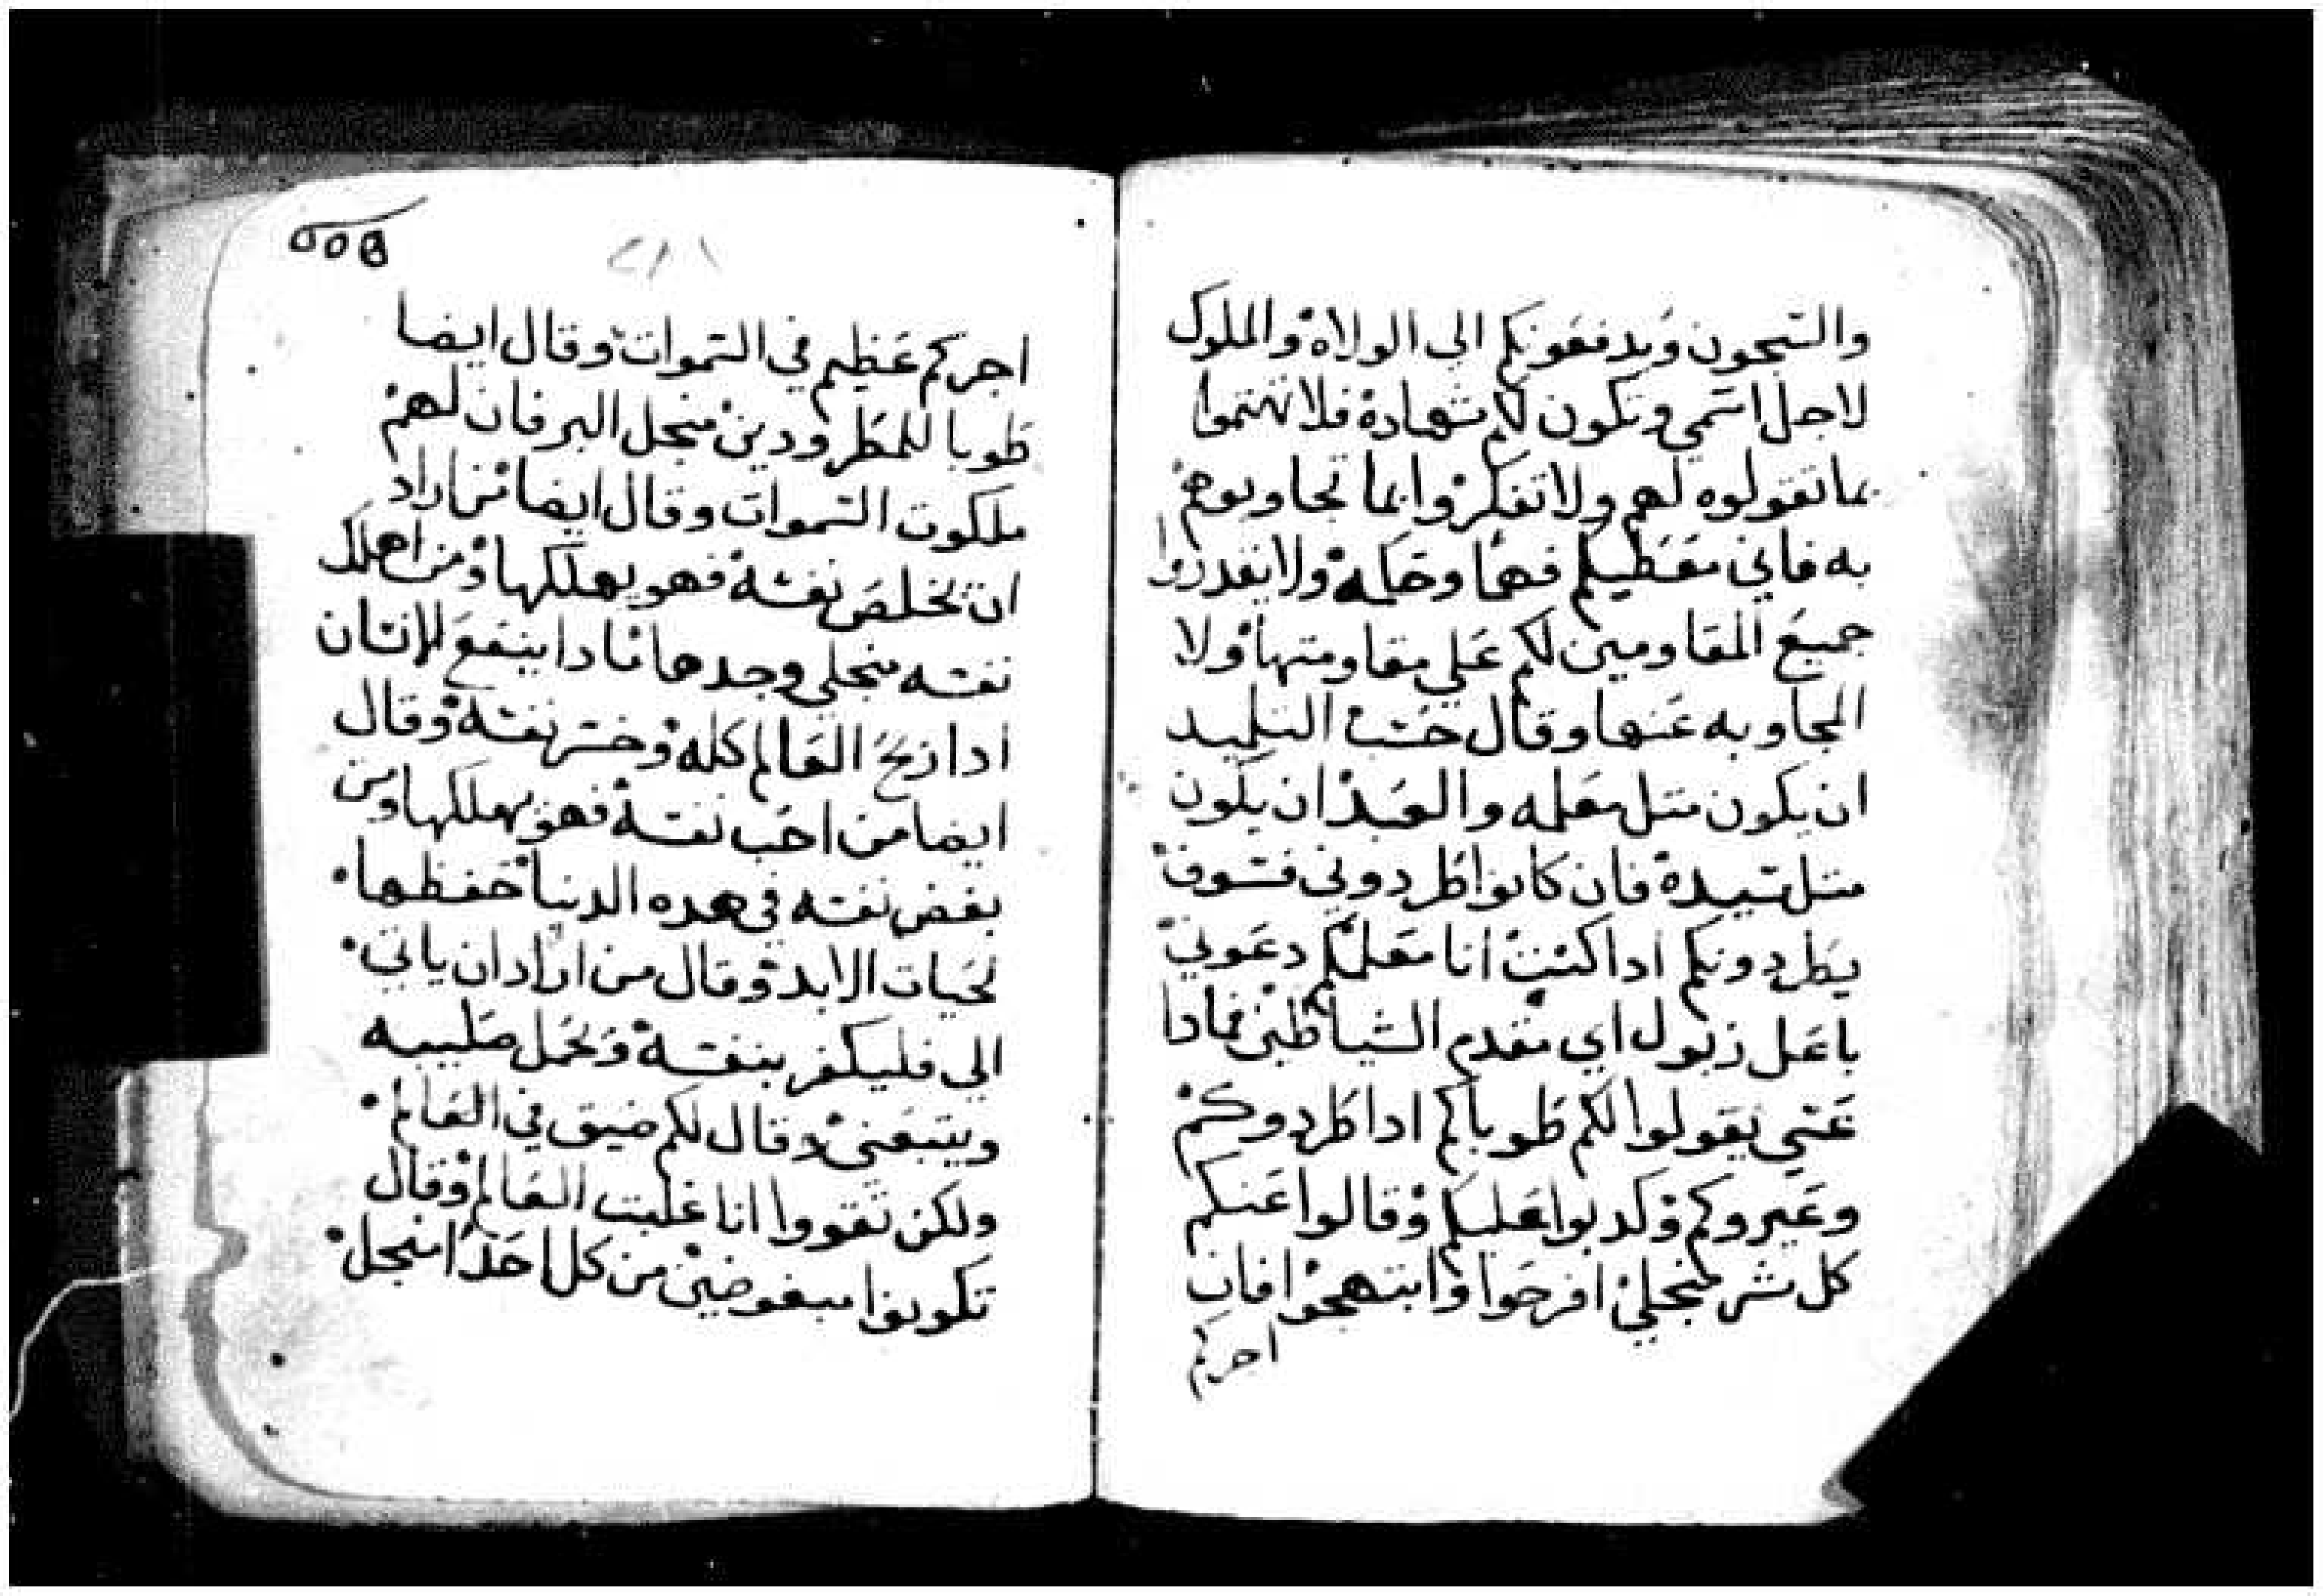 والسجون ويدفعونكم الى الولاه والملوك
لاجل اسمي وتكون لكم شهادة فلا تهتموا
بما تقولوه لهم ولا تفكروا بما تجاوبوهم
به فاني معطيكم فهما وحكمه ولا يقدروا
جميع المقاومين لكم علي مقاومتها ولا
المجاوبه عنها وقال حسب التلميد
ان يكون متل معلمه والعبد ان يكون
متل سيده فان كانوا طردوني فسوف
يطردونكم ادا كنت انا معلمكم دعوني
باعل زبول اي مقدم الشياطين فمادا
عسي يقولوا لكم طوباكم ادا طردوكم
وعيروكم وكدبوا عليكم وقالوا عنكم
كل شر لمنجلي افرحوا وابتهجوا فان
اجركم
اجركم عظيم في السموات وقال ايضا
طوبا للمطرودين منجل البر فان لهم
ملكوت السموات وقال ايضا من اراد
ان يخلص نفسه فهو يهلكها ومن اهلك
نفسه منجلي وجدها مادا ينفع للانسان
ادا ربح العالم كله وخسر نفسه وقال
ايضا من احب نفسه فهو يهلكها ومن
بغض نفسه في هده الدنيا حفظها
لحيات الابد وقال من اراد ان ياتي
الي فليكفر بنفسه ويحمل صليبه
ويتبعني وقال لكم ضيق في العالم
ولكن تقووا انا غلبت العالم وقال
تكونوا مبغوضين من كل احد امنجل